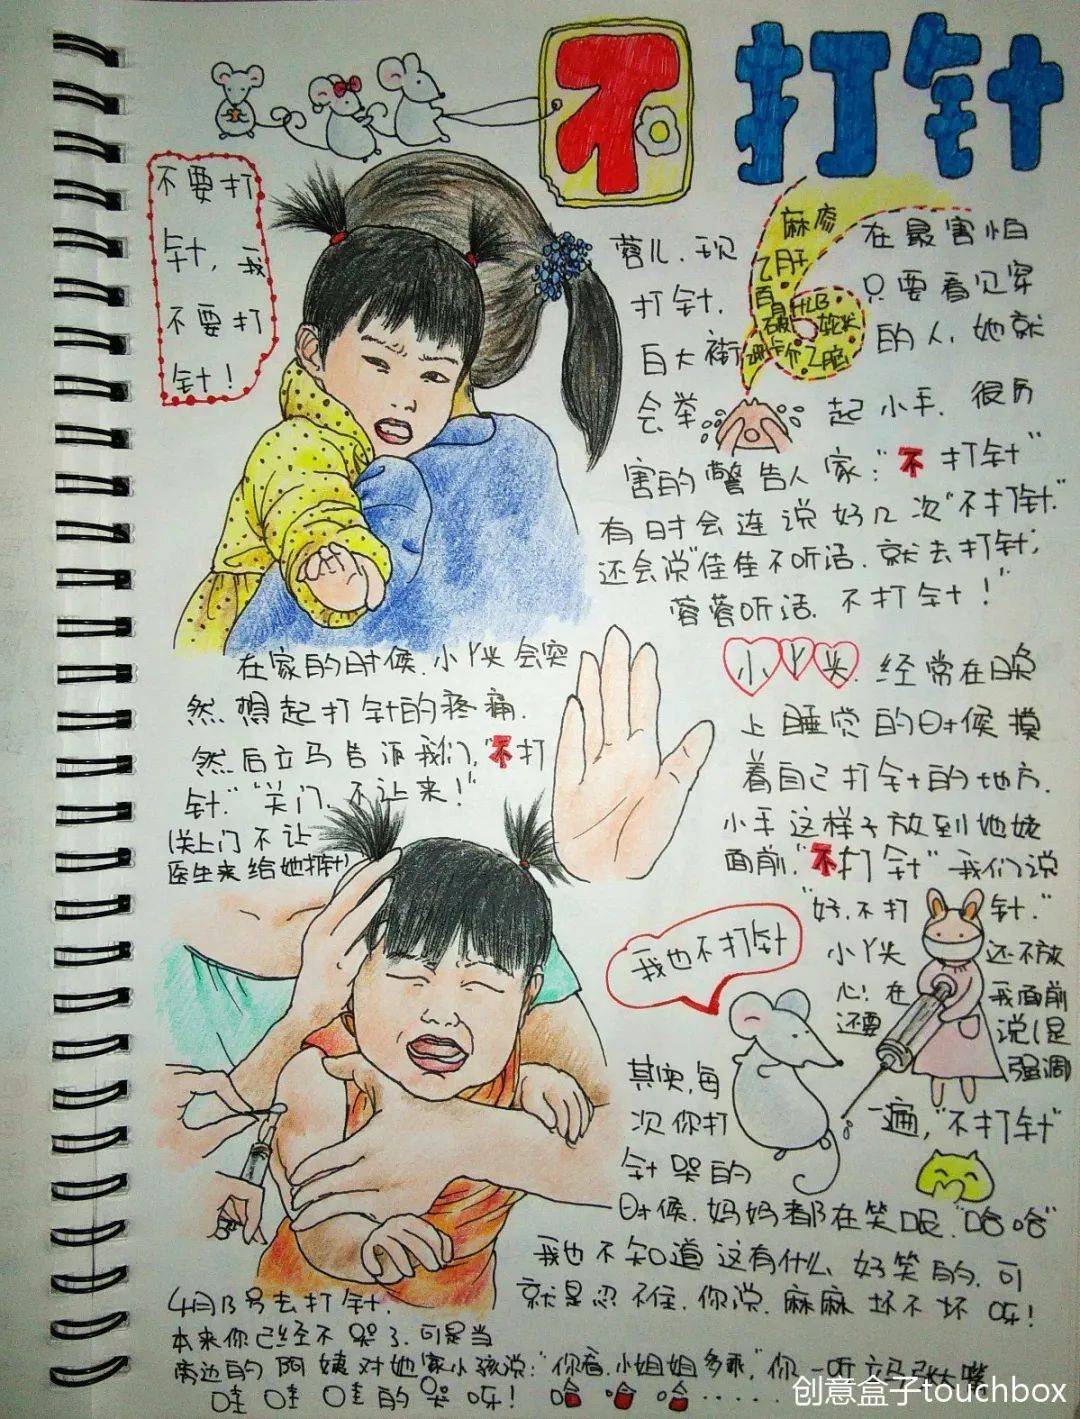 不打针
不要打
针,我
不要打
针!
蓉儿.现在最害怕
打针.只要看见穿
白大褂的人,她就
会举起小手.很厉
害的警告人家:"不打针"
有时会连说好几次"不打针."
还会说"佳佳不听话.就去打针,
蓉蓉听话.不打针!
麻疹
乙肝
百白破
HLB
轮状
卡介
乙脑
在家的时候.小丫头会突
然想起打针的疼痛.
然后立马告诉我们,"不打
针.""关门,不让来!"
(关上门不让
医生来给她打针)
小丫头.经常在晚
上睡觉的时候摸
着自己打针的地方.
小手这样子放到她姥
面前."不打针"我们说
"好.不打针."
小丫头还不放
心!在我面前
还要说(是
强调
一遍,"不打针"
我也不打针
其实,每
次你打
针哭的
时候.妈妈都在笑呢."哈哈"
我也不知道这有什么好笑的.可
就是忍不住.你说.麻麻坏不坏呀!
4月13号去打针.
本来你已经不哭了.可是当
旁边的阿姨对她家小孩说:"你看.小姐姐多乖,"你一听立马张大嘴
哇哇哇的哭呀!哈哈哈......
创意盒子touchbox